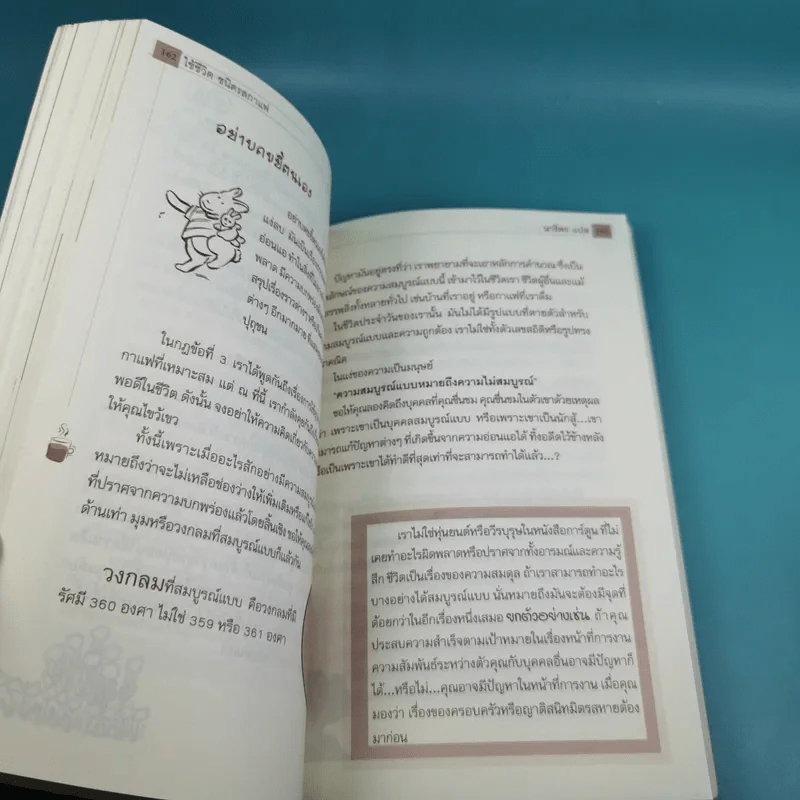 162 ใช้ชีวิต ชนิดรสกาแฟ
อย่าบดขยี้ตนเอง
อย่าบดขยี้ตนเอง
แง่ลบ มันเป็นเรื่อง
อ่อนแอ ทำในสิ่งที่
พลาด มีความบกพร่อง
สรุปเรื่องราวต่างๆ
ต่างๆ อีกมากมาย
ปุถุชน
ในกฎข้อที่ 3 เราได้พูดกันถึงเรื่อง
กาแฟที่เหมาะสม แต่ ณ ที่นี้ เรากำลังคุยกันถึง
พอดีในชีวิต ดังนั้น จงอย่าให้ความคิดเกี่ยวกับ
ให้คุณไขว้เขว
ทั้งนี้เพราะเมื่ออะไรสักอย่างมีความสมบูรณ์
หมายถึงว่าจะไม่เหลือช่องว่างให้เพิ่มเติมหรือ
ที่ปราศจากความบกพร่องแล้วโดยสิ้นเชิง ขอให้คุณ
ด้านเท่า มุมหรือวงกลมที่สมบูรณ์แบบก็แล้วกัน
วงกลมที่สมบูรณ์แบบ คือวงกลมที่มี
รัศมี 360 องศา ไม่ใช่ 359 หรือ 361 องศา
นารีพร แปล
ปัญหามันอยู่ตรงที่ว่า เราพยายามที่จะเอาหลักการคำนวณ ซึ่งเป็น
ลักษณ์ของความสมบูรณ์แบบนี้ เข้ามาไว้ในชีวิตเรา ชีวิตผู้อื่นและแม้
สรรพสิ่งทั้งหลายทั่วไป เช่นบ้านที่เราอยู่ หรือกาแฟที่เราดื่ม
ในชีวิตประจำวันของเรานั้น มันไม่ได้มีรูปแบบที่ตายตัวสำหรับ
ความสมบูรณ์แบบและความถูกต้อง เราไม่ใช่ทั้งตัวเลขสถิติหรือรูปทรง
คณิต
ในแง่ของความเป็นมนุษย์
"ความสมบูรณ์แบบหมายถึงความไม่สมบูรณ์"
ขอให้คุณลองคิดถึงบุคคลที่คุณชื่นชม คุณชื่นชมในตัวเขาด้วยเหตุผล
ว่า เพราะเขาเป็นบุคคลสมบูรณ์แบบ หรือเพราะเขาเป็นนักสู้...เขา
สามารถแก้ปัญหาต่างๆ ที่เกิดขึ้นจากความอ่อนแอได้ ทิ้งอดีตไว้ข้างหลัง
หรือเป็นเพราะเขาได้ทำดีที่สุดเท่าที่จะสามารถทำได้แล้ว...?
เราไม่ใช่หุ่นยนต์หรือวีรบุรุษในหนังสือการ์ตูน ที่ไม่
เคยทำอะไรผิดพลาดหรือปราศจากทั้งอารมณ์และความรู้
สึก ชีวิตเป็นเรื่องของความสมดุล ถ้าเราสามารถทำอะไร
บางอย่างได้สมบูรณ์แบบ นั่นหมายถึงมันจะต้องมีจุดที่
ด้อยกว่าในอีกเรื่องหนึ่งเสมอ ยกตัวอย่างเช่น ถ้าคุณ
ประสบความสำเร็จตามเป้าหมายในเรื่องหน้าที่การงาน
ความสัมพันธ์ระหว่างตัวคุณกับบุคคลอื่นอาจมีปัญหาก็
ได้...หรือไม่...คุณอาจมีปัญหาในหน้าที่การงาน เมื่อคุณ
มองว่า เรื่องของครอบครัวหรือญาติสนิทมิตรสหายต้อง
มาก่อน